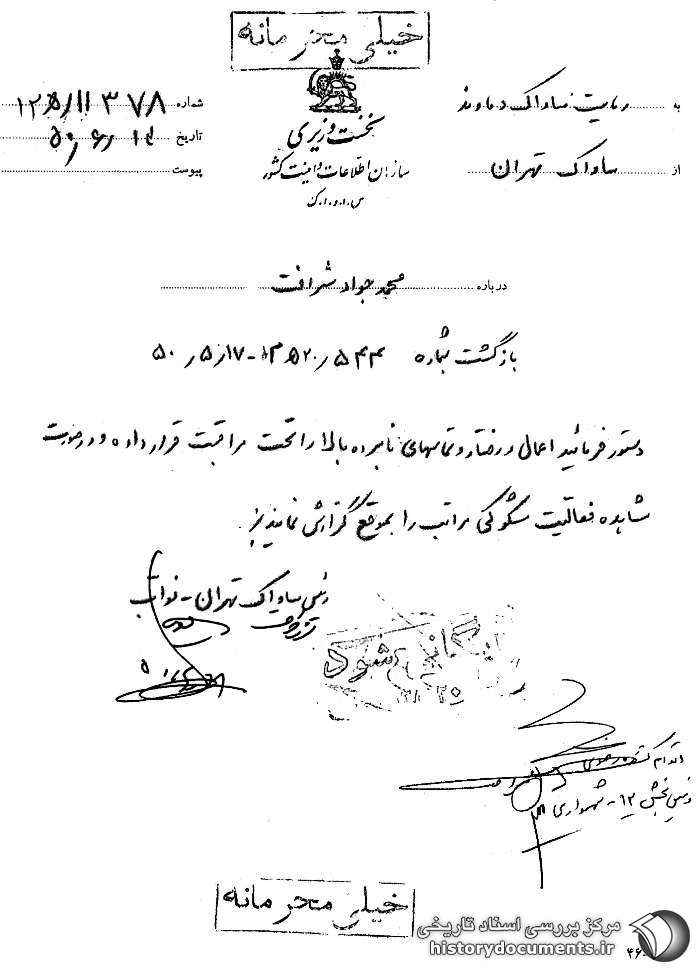 خیلی محرمانه
نخست وزیری
سازمان اطلاعات و امنیت کشور
س.ا.و.ا.ک
به ریاست ساواک دماوند
از ساواک تهران
شماره ۱۱۳۷۸
تاریخ ۵۰٫۶٫۱۴
پیوست
درباره محمد جواد شرافت
بازگشت بشماره
دستور فرمائید اعمال و رفتار و تماسهای نامبرده بالا را تحت مراقبت قرار داده و در صورت
مشاهده فعالیت مشکوکی مراتب را بموقع گزارش نمایند
رئیس ساواک تهران - نواب
بایگانی شود
اقدام کننده
رئیس بخش ۱۲ - شهواری
خیلی محرمانه
مرکز بررسی اسناد تاریخی
historydocuments.ir